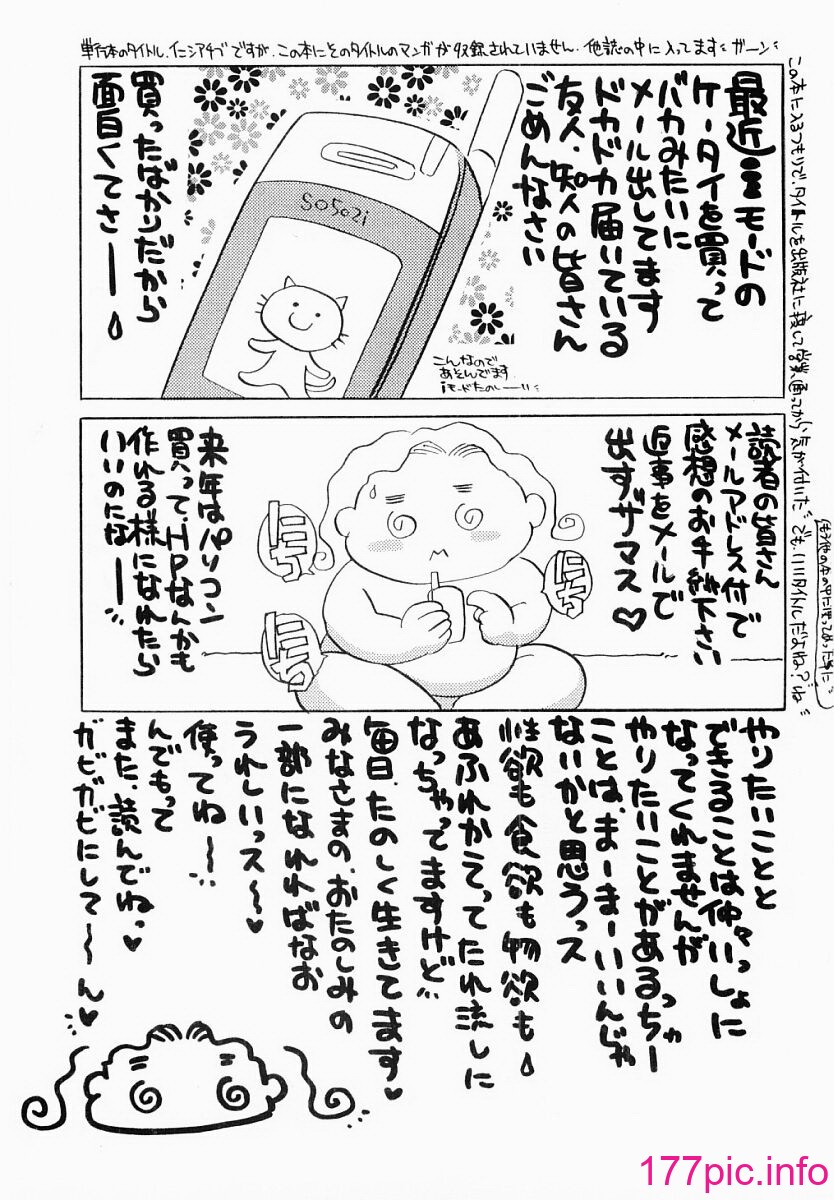 単行本のタイトル、イニシアチブですが、この本にそのタイトルのマンガが収録されていません。他誌の中に入ってます ガーン
この本に入るつもりで、タイトルを出版社に
でも、いいタイトルだよね？
最近iモードの
ケータイを買って
バカみたいに
メール出してます
ドカドカ届いている
友人、知人の皆さん
ごめんなさい
SO502i
買ったばかりだから
面白くてさーー
こんなので
あそんでます
iモードたのしーー
読者の皆さん
メールアドレス付で
感想のお手紙下さい
返事をメールで
出すザマス♡
にち
にち
にち
来年はパソコン
買って、HPなんかも
作れる様になれたら
いいのになーー
やりたいことと
できることは仲々いっしょに
なってくれませんが
やりたいことがあるっちゃー
ことは、まーまーいいんじゃ
ないかと思うっス
性欲も食欲も物欲も
あふれかえってたれ流しに
なっちゃってますけど
毎日、たのしく生きてます♥
みなさまの、おたのしみの
一部になれればなお
うれしいっス〜♥
使ってね〜
んでもって
また、読んでねっ♥
ガビガビにして〜ん♥
177pic.info